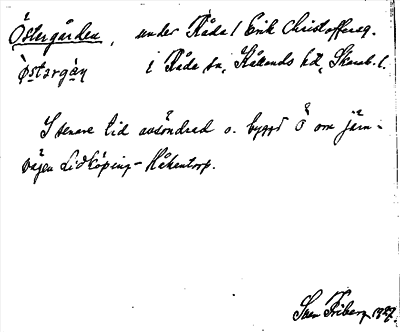 Östergården, under Råda l Erik Christoffersg.
östərgàṇ i Råda sn, Kållands hd, Skarab. l.
I senare tid avsöndrad o. byggd Ö om järn-
vägen Lidköping-Håkantorp.
Sven Friberg 1927.